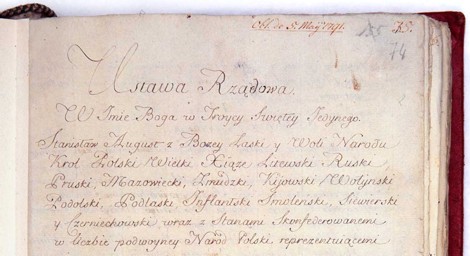 Obl. de 5. Maij 1791. 155 B3.
74
Ustawa Rządowa.
W Imie Boga w Troycy Swiętey Jedynego.
Stanisław August z Bożey Łaski y Woli Narodu
Krol Polski Wielki Xiąże Litewski Ruski
Pruski, Mazowiecki, Zmudzki, Kijowski Wołyński
Podolski, Podlaski Inflantski Smolenski, Siewierski
y Czerniechowski wraz z Stanami Skonfederowanemi
w liczbie podwoyney Narod Polski reprezentuiącemi